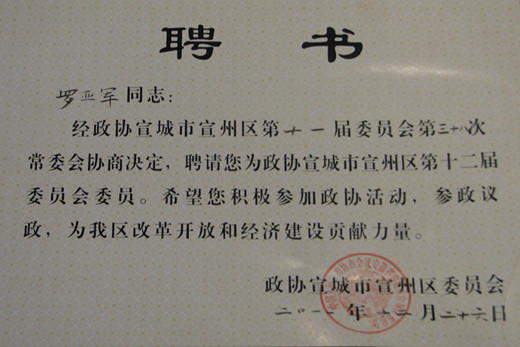 聘书
罗亚军同志：
经政协宣城市宣州区第十一届委员会第三十八次
常委会协商决定，聘请您为政协宣城市宣州区第十二届
委员会委员。希望您积极参加政协活动，参政议
政，为我区改革开放和经济建设贡献力量。
政协宣城市宣州区委员会
二〇一一年十二月二十六日